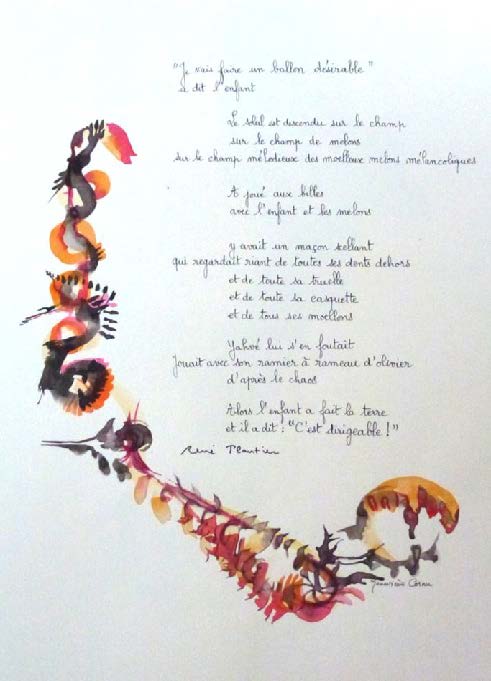 "Je vais faire un ballon désirable"
a dit l'enfant
Le soleil est descendu sur le champ
sur le champ de melons
sur le champ mélodieux des moelleux melons mélancoliques
A joué aux billes
avec l'enfant et les melons
Y avait un maçon scellant
qui regardait riant de toutes ses dents dehors
et de toute sa truelle
et de toute sa casquette
et de tous ses moellons
Yahvé lui s'en foutait
Jouait avec son ramier à rameau d'olivier
d'après le chaos
Alors l'enfant a fait la terre
et il a dit : "C'est dirigeable !"
René